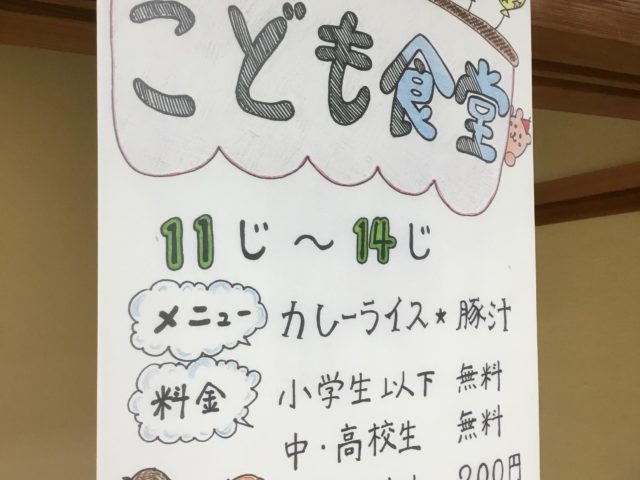 こども食堂
11じ～14じ
メニュー カレーライス★豚汁
料金 小学生以下 無料
中・高校生 無料
200円